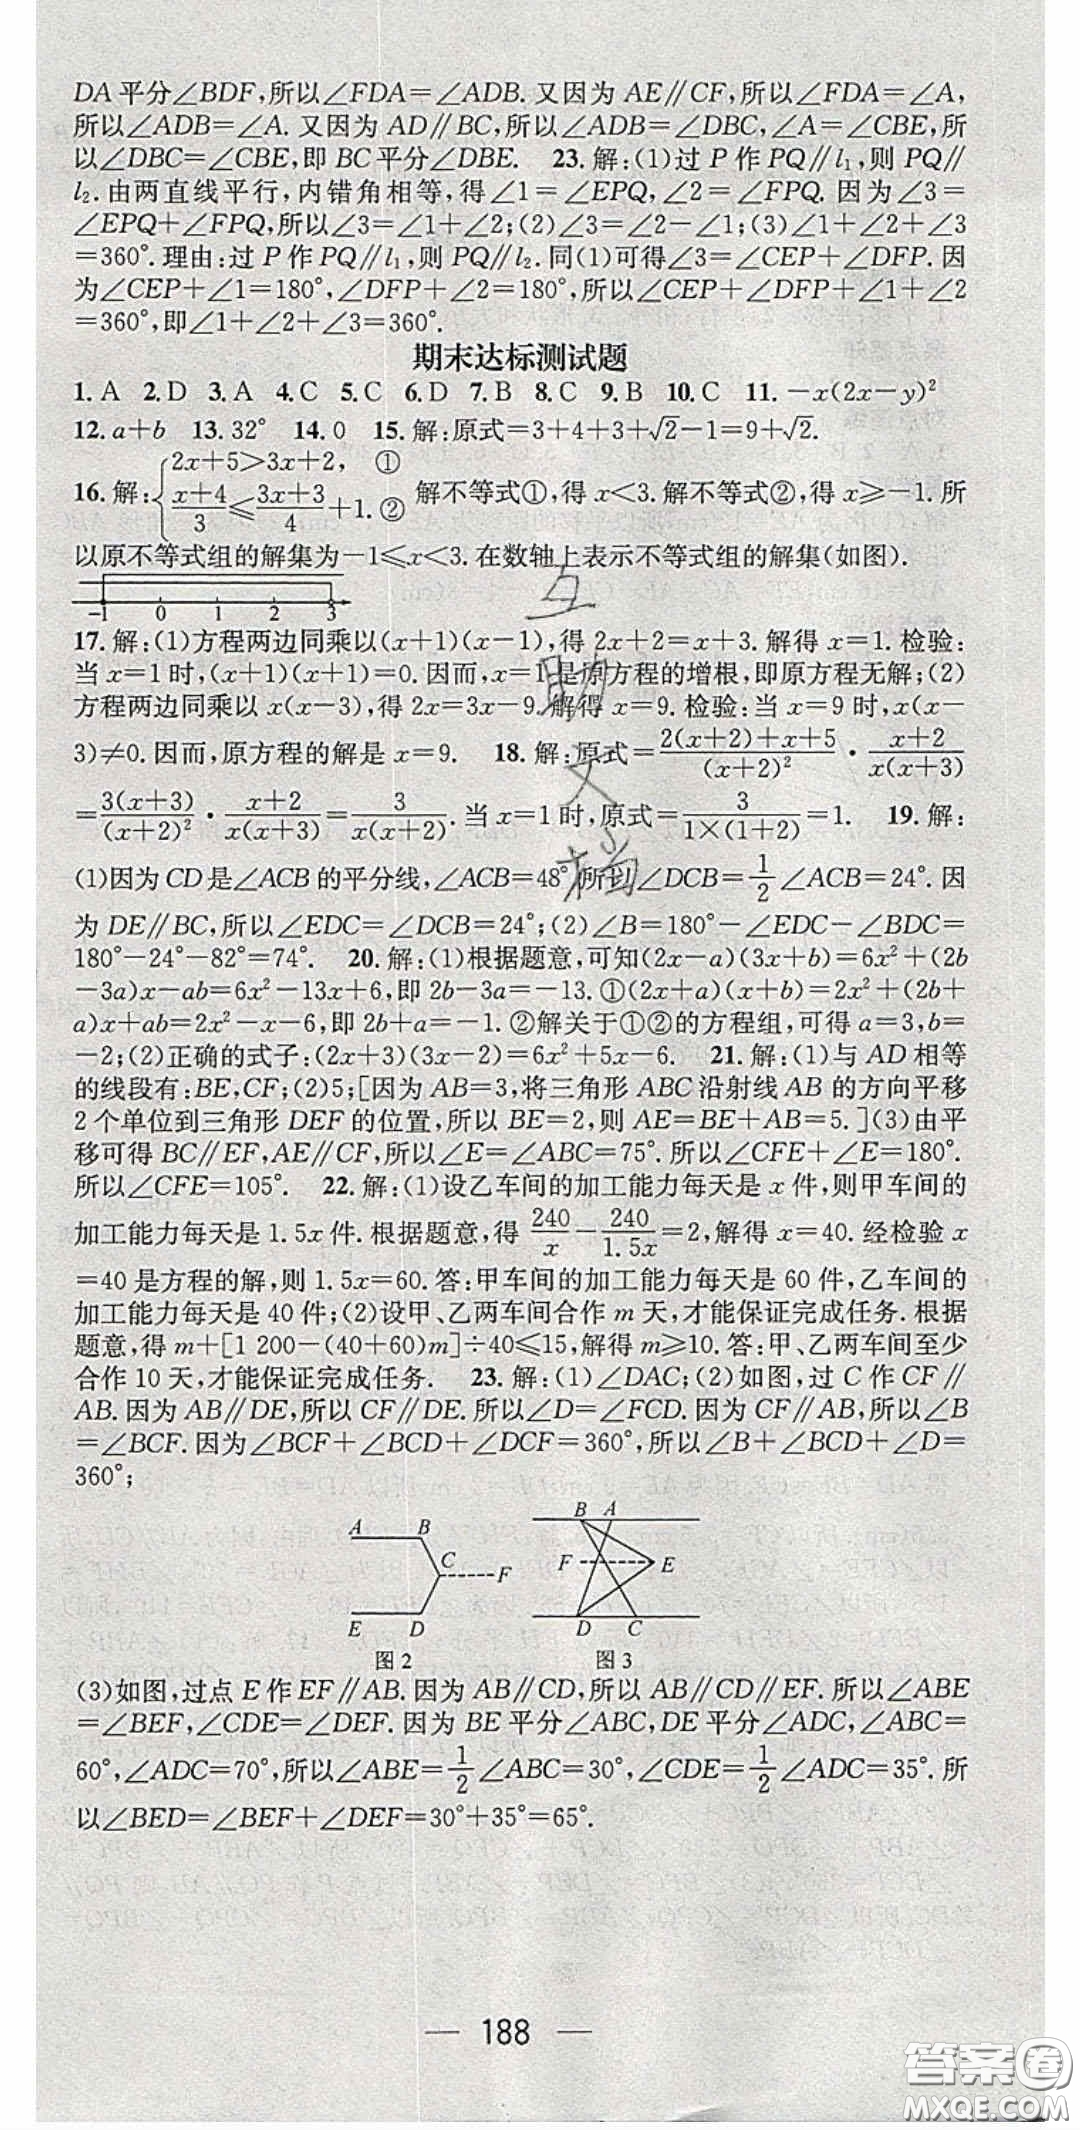 DA平分∠BDF,所以∠FDA=∠ADB.又因为AE∥CF,所以∠FDA=∠A,
所以∠ADB=∠A.又因为AD∥BC,所以∠ADB=∠DBC,∠A=∠CBE,所
以∠DBC=∠CBE,即BC平分∠DBE. 23.解:(1)过P作PQ∥l₁,则PQ∥
l₂.由两直线平行,内错角相等,得∠1=∠EPQ,∠2=∠FPQ.因为∠3=
∠EPQ+∠FPQ,所以∠3=∠1+∠2;(2)∠3=∠2-∠1;(3)∠1+∠2+∠3
=360°.理由:过P作PQ∥l₁,则PQ∥l₂.同(1)可得∠3=∠CEP+∠DFP.因
为∠CEP+∠1=180°,∠DFP+∠2=180°,所以∠CEP+∠DFP+∠1+∠2
=360°,即∠1+∠2+∠3=360°.
期末达标测试题
1.A 2.D 3.A 4.C 5.C 6.D 7.B 8.C 9.B 10.C 11.-x(2x-y)²
12.a+b 13.32° 14.0 15.解:原式=3+4+3+√2-1=9+√2.
16.解:{2x+5>3x+2, ① (x+4)/3≤(3x+3)/4+1.② 解不等式①,得x<3.解不等式②,得x≥-1.所
以原不等式组的解集为-1≤x<3.在数轴上表示不等式组的解集(如图).
-1 0 1 2 3
17.解:(1)方程两边同乘以(x+1)(x-1),得2x+2=x+3.解得x=1.检验:
当x=1时,(x+1)(x+1)=0.因而,x=1是原方程的增根,即原方程无解;(2)
方程两边同乘以x(x-3),得2x=3x-9.解得x=9.检验:当x=9时,x(x-
3)≠0.因而,原方程的解是x=9. 18.解:原式=(2(x+2)+x+5)/(x+2)²·(x+2)/(x(x+3))
=3(x+3)/(x+2)²·(x+2)/(x(x+3))=3/(x(x+2)).当x=1时,原式=3/(1×(1+2))=1. 19.解:
(1)因为CD是∠ACB的平分线,∠ACB=48°,所以∠DCB=1/2∠ACB=24°.因
为DE∥BC,所以∠EDC=∠DCB=24°;(2)∠B=180°-∠EDC-∠BDC=
180°-24°-82°=74°. 20.解:(1)根据题意,可知(2x-a)(3x+b)=6x²+(2b
-3a)x-ab=6x²-13x+6,即2b-3a=-13.①(2x+a)(x+b)=2x²+(2b+
a)x+ab=2x²-x-6,即2b+a=-1.②解关于①②的方程组,可得a=3,b=
-2;(2)正确的式子:(2x+3)(3x-2)=6x²+5x-6. 21.解:(1)与AD相等
的线段有:BE,CF;(2)5;[因为AB=3,将三角形ABC沿射线AB的方向平移
2个单位到三角形DEF的位置,所以BE=2,则AE=BE+AB=5.](3)由平
移可得BC∥EF,AE∥CF,所以∠E=∠ABC=75°.所以∠CFE+∠E=180°.
所以∠CFE=105°. 22.解:(1)设乙车间的加工能力每天是x件,则甲车间的
加工能力每天是1.5x件.根据题意,得240/x-240/1.5x=2,解得x=40.经检验x
=40是方程的解,则1.5x=60.答:甲车间的加工能力每天是60件,乙车间的
加工能力每天是40件;(2)设甲、乙两车间合作m天,才能保证完成任务.根据
题意,得m+[1 200-(40+60)m]÷40≤15,解得m≥10.答:甲、乙两车间至少
合作10天,才能保证完成任务. 23.解:(1)∠DAC;(2)如图,过C作CF∥
AB.因为AB∥DE,所以CF∥DE.所以∠D=∠FCD.因为CF∥AB,所以∠B
=∠BCF.因为∠BCF+∠BCD+∠DCF=360°,所以∠B+∠BCD+∠D=
360°;
A B C F E D
图2
B A F E D C
图3
(3)如图,过点E作EF∥AB.因为AB∥CD,所以AB∥CD∥EF.所以∠ABE
=∠BEF,∠CDE=∠DEF.因为BE平分∠ABC,DE平分∠ADC,∠ABC=
60°,∠ADC=70°,所以∠ABE=1/2∠ABC=30°,∠CDE=1/2∠ADC=35°.所
以∠BED=∠BEF+∠DEF=30°+35°=65°.
互助文档
— 188 —
答案圈
MXQE.COM